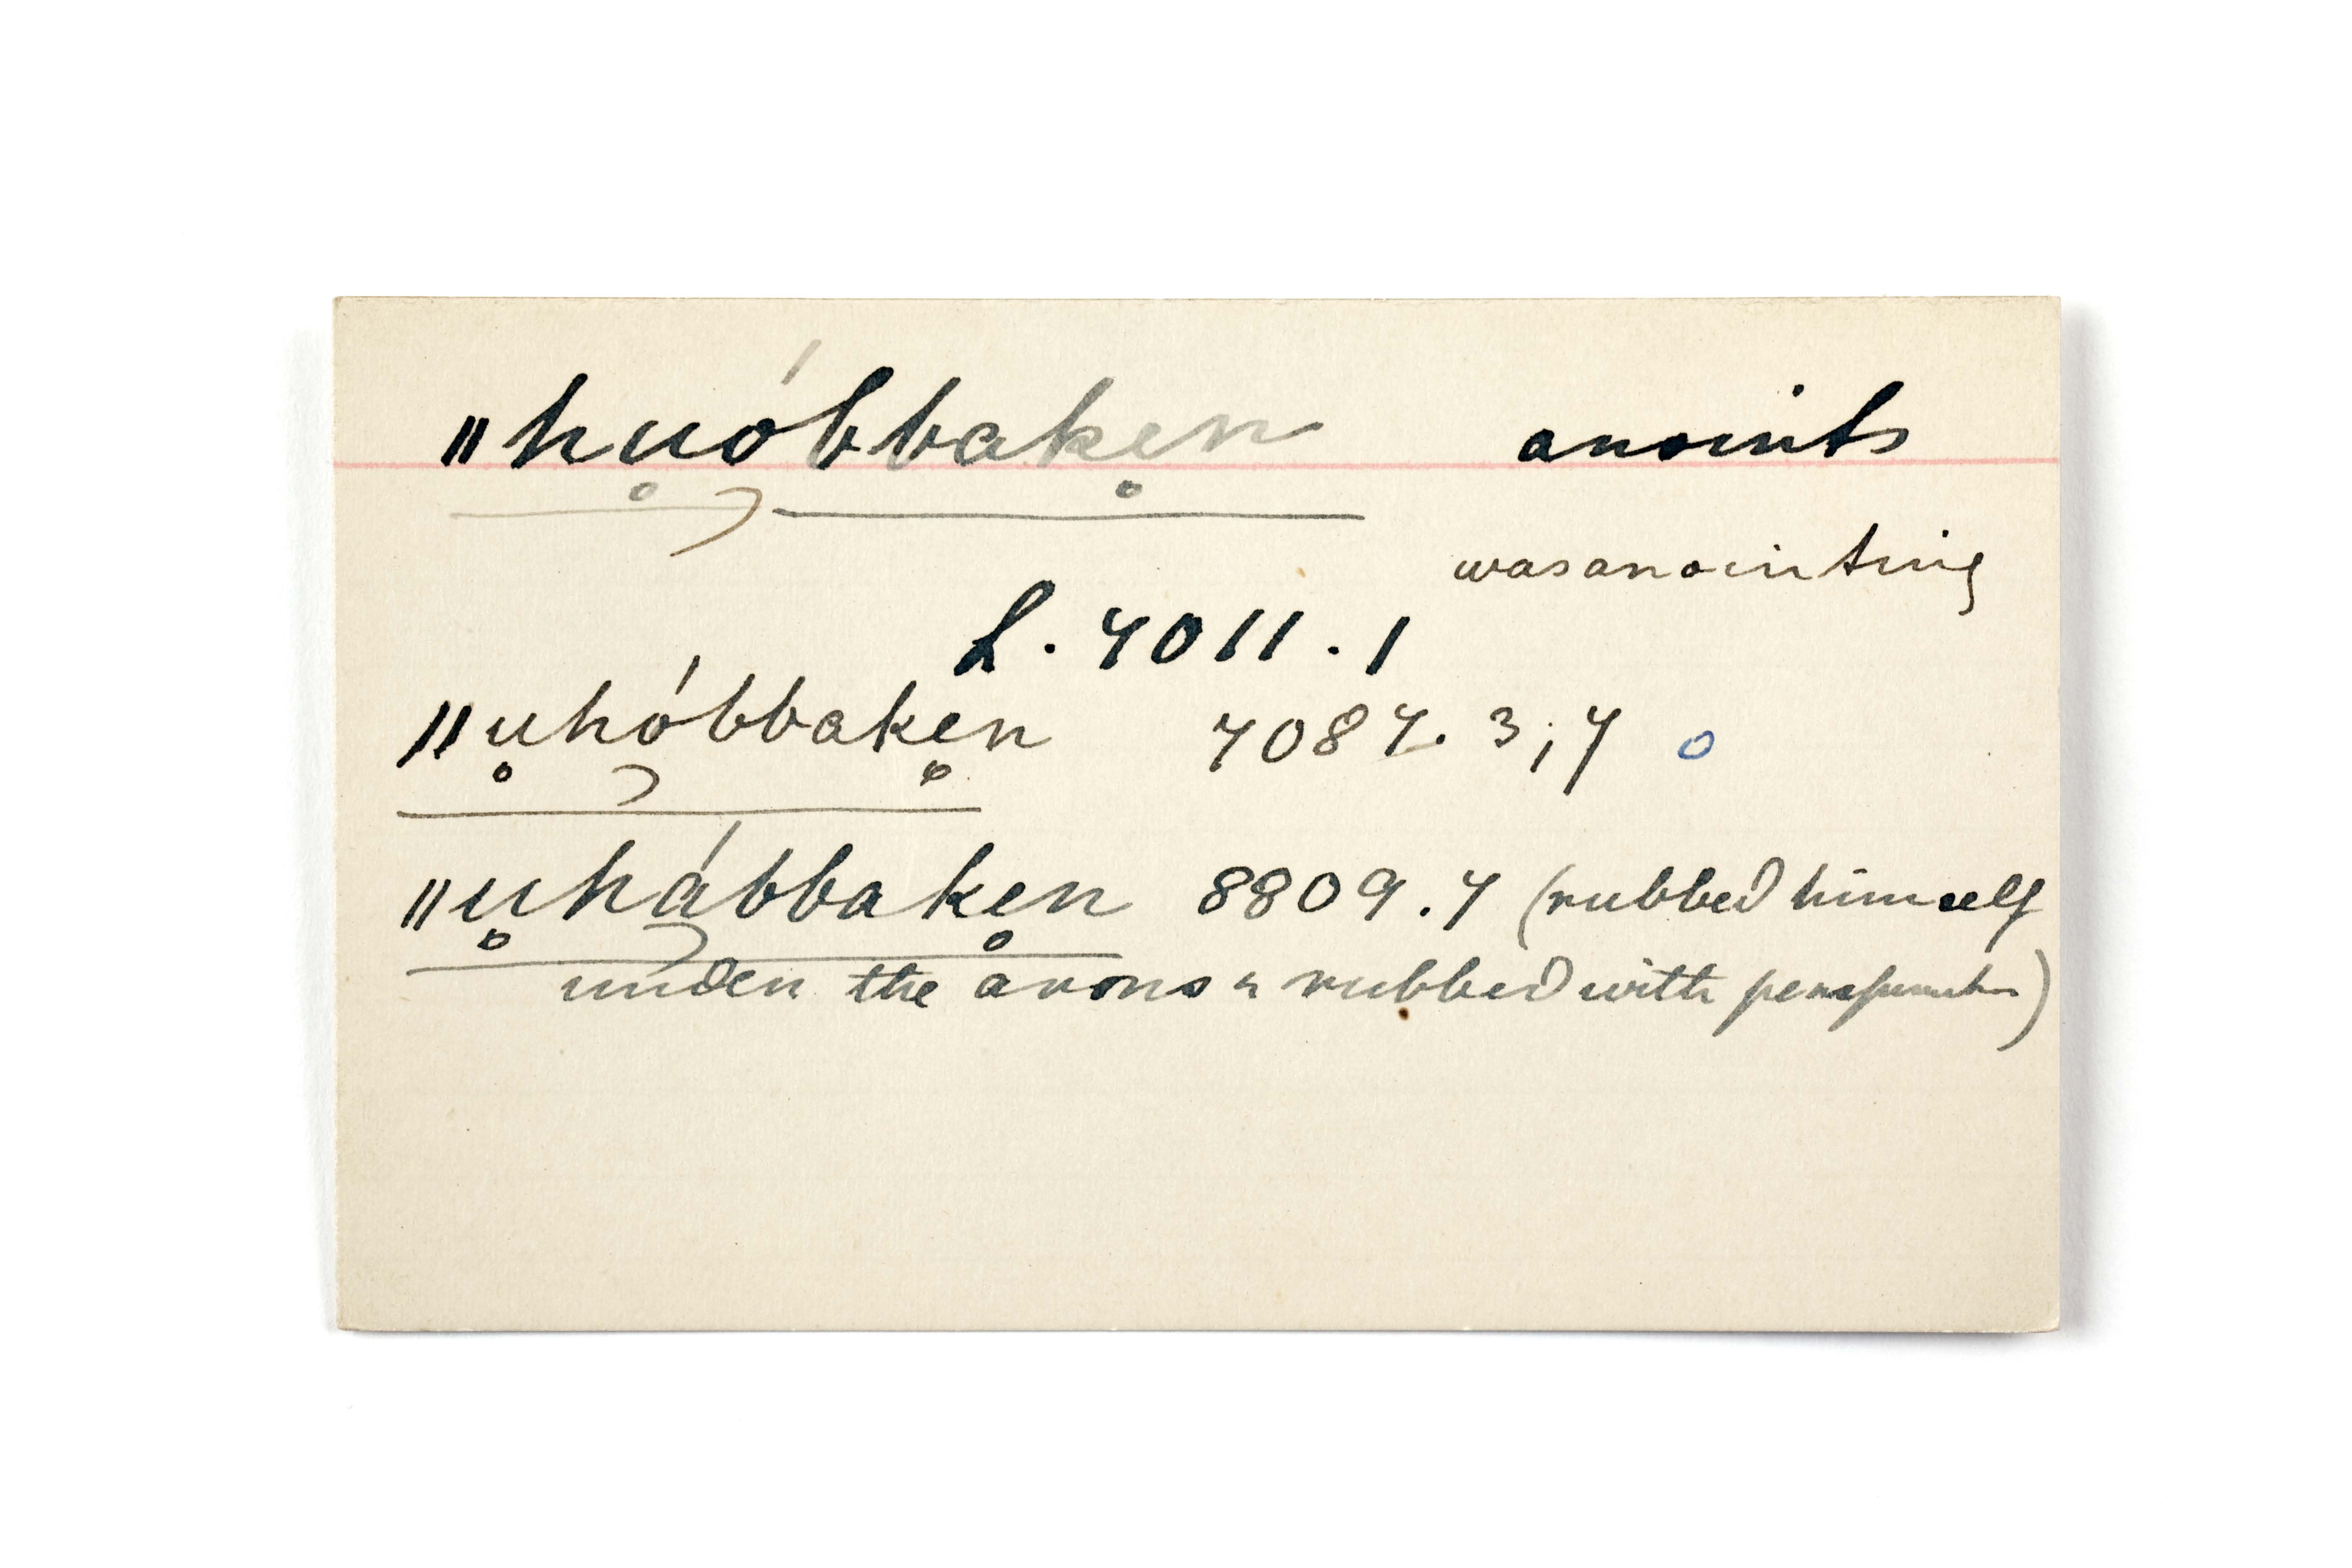 ‖hu̥óbbake̥n anoints
was anointing
L. 4011.1
‖u̥hóbbake̥n 4087. 3; 4 o
‖u̥hábbake̥n 8809.4 (rubbed himself
under the arms & rubbed with perspiration)